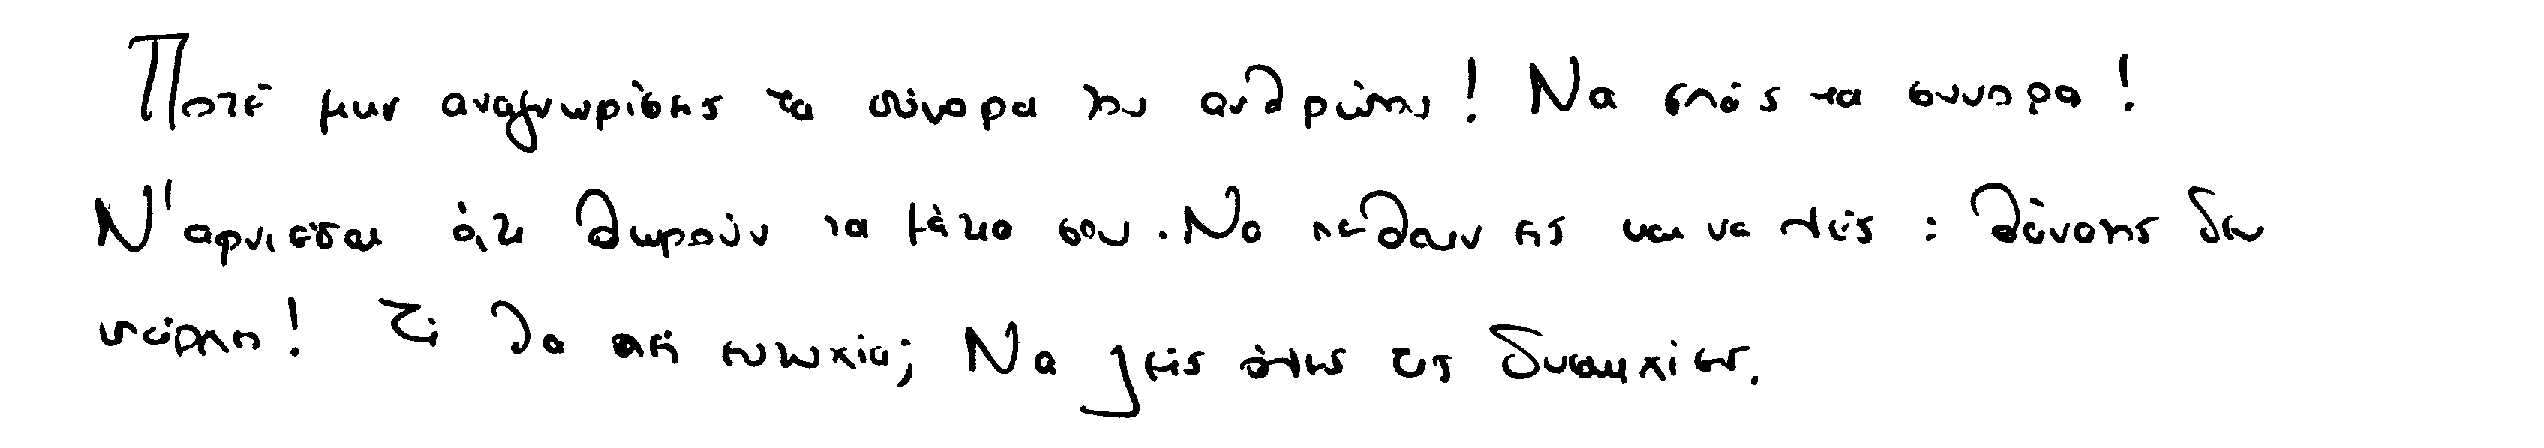 Ποτέ μην αναγνωρίσεις τα σύνορα του ανθρώπου! Να σπάς τα συνορα!
Ν'αρνιέσαι ό,τι θωρούν τα μάτια σου. Να πεθαινεις και να λές: θάνατος δεν
υπάρχει! Τι θα πεί ευτυχία; Να ζείς όλες τις δυστυχίες.